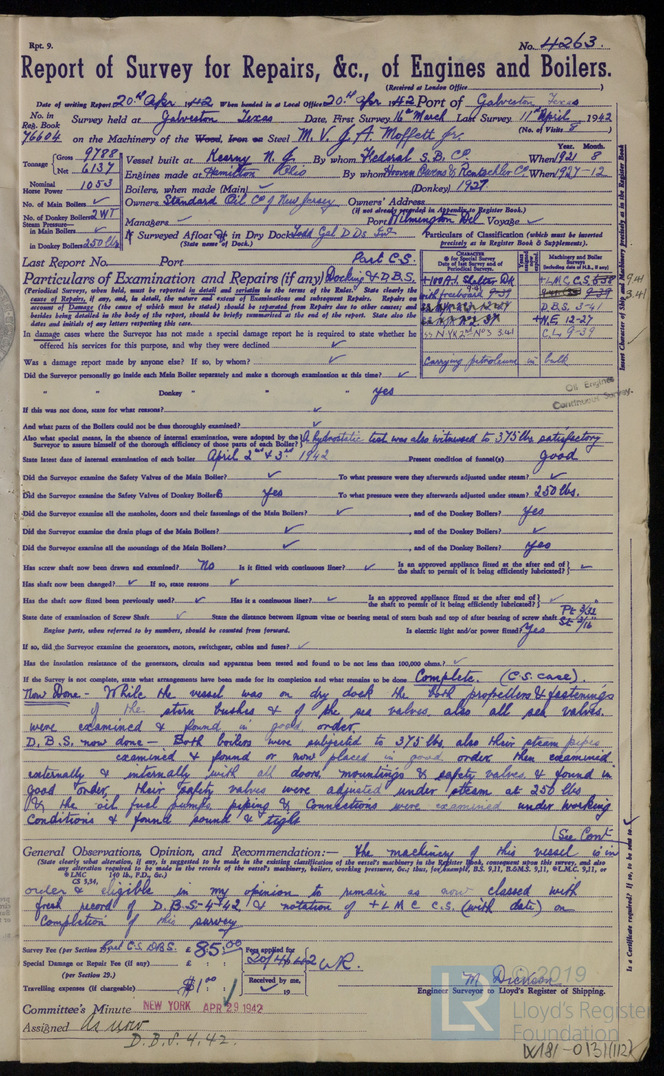 Rpt. 9.
No. 4263.
Report of Survey for Repairs, &c., of Engines and Boilers.
(Received at London Office)
Date of writing Report 20th Apr 1942 When handed in at Local Office 20th Apr 1942 Port of Galveston Texas
No. in Reg. Book 76604
Survey held at Galveston Texas Date, First Survey 16th March Last Survey 11th April 1942
(No. of Visits 8)
on the Machinery of the Wood, Iron or Steel M.V. J.A. Moffett Jr.
Tonnage Gross 9788 Net 6137
Vessel built at Kearny N.J. By whom Federal S.B. Co. When 1921 8
Engines made at Hamilton Ohio By whom Hooven Owens & Rentschler Co When 1927-12
Nominal Horse Power 1053
Boilers, when made (Main) (Donkey) 1927
No. of Main Boilers
Owners Standard Oil Co of New Jersey Owners' Address
(if not already recorded in Appendix to Register Book.)
No. of Donkey Boilers 2WT
Managers Port Wilmington Del Voyage
Steam Pressure— in Main Boilers
in Donkey Boilers 250 lbs
If Surveyed Afloat or in Dry Dock Todd Gal D Ds Inc
(State name of Dock.)
Particulars of Classification (which must be inserted precisely as in Register Book & Supplements).
Last Report No. Port Part C.S.
Particulars of Examination and Repairs (if any) Docking & D.B.S.
(Periodical Surveys, when held, must be reported in detail and seriatim in the terms of the Rules. State clearly the cause of Repairs, if any, and, in detail, the nature and extent of Examinations and subsequent Repairs. Repairs on account of Damage (the cause of which must be stated) should be separated from Repairs due to other causes; and besides being detailed in the body of the report, should be briefly summarised at the end of the report. State also the dates and initials of any letters respecting this case.
+100A1. Shelter Dk
with freeboard 9-39
SS N.YK 2nd No3 3.41
+L.M.C. C.S. 5.38
D.B.S. 3-41
+N.E. 12-27
C.L. 9-39
Carrying petroleum in bulk
Oil Engines
Continuous Survey.
In damage cases where the Surveyor has not made a special damage report he is required to state whether he offered his services for this purpose, and why they were declined
Was a damage report made by anyone else? If so, by whom?
Did the Surveyor personally go inside each Main Boiler separately and make a thorough examination at this time?
" " Donkey " " " yes
If this was not done, state for what reasons?
And what parts of the Boilers could not be thus thoroughly examined?
Also what special means, in the absence of internal examination, were adopted by the Surveyor to assure himself of the thorough efficiency of those parts of each Boiler? A hydrostatic test was also witnessed to 375 lbs. satisfactory
State latest date of internal examination of each boiler April 2nd & 3rd 1942 Present condition of funnel(s) good
Did the Surveyor examine the Safety Valves of the Main Boiler? To what pressure were they afterwards adjusted under steam?
Did the Surveyor examine the Safety Valves of Donkey Boilers yes To what pressure were they afterwards adjusted under steam? 250 lbs.
Did the Surveyor examine all the manholes, doors and their fastenings of the Main Boilers? , and of the Donkey Boilers? yes
Did the Surveyor examine the drain plugs of the Main Boilers? , and of the Donkey Boilers?
Did the Surveyor examine all the mountings of the Main Boilers? , and of the Donkey Boilers? yes
Has screw shaft now been drawn and examined? No Is it fitted with continuous liner? Is an approved appliance fitted at the after end of the shaft to permit of it being efficiently lubricated?
Has shaft now been changed? If so, state reasons
Has the shaft now fitted been previously used? Has it a continuous liner? Is an approved appliance fitted at the after end of the shaft to permit of it being efficiently lubricated?
State date of examination of Screw Shaft State the distance between lignum vitæ or bearing metal of stern bush and top of after bearing of screw shaft
Engine parts, when referred to by numbers, should be counted from forward. Is electric light and/or power fitted? Yes
If so, did the Surveyor examine the generators, motors, switchgear, cables and fuses?
Has the insulation resistance of the generators, circuits and apparatus been tested and found to be not less than 100,000 ohms?
If the Survey is not complete, state what arrangements have been made for its completion and what remains to be done Complete. (C.S. case).
Now Done - While the vessel was on dry dock the both propellers & fastenings
of the stern bushes & of the sea valves, also all sea valves.
were examined & found in good order
D.B.S. now done - Both boilers were subjected to 375 lbs. also their steam pipes
examined & found or now placed in good order, then examined.
externally & internally with all doors, mountings & safety valves, & found in
good order, their safety valves were adjusted under steam at 250 lbs
& the oil fuel pumps piping & connections were examined under working
conditions & found sound & tight
(See Cont
General Observations, Opinion, and Recommendation:— The machinery of this vessel is in
(State clearly what alteration, if any, is suggested to be made in the existing classification of the vessel's machinery in the Register Book, consequent upon this survey, and also any alteration required to be made in the records of the vessel's machinery, boilers, working pressures, &c.; thus, for example, B.S. 9,11, B.&M.S. 9,11, &L.M.C. 9,11, or
order & eligible in my opinion to remain as now classed with
fresh record of D.B.S-4-42 & notation of +LMC C.S. (with date) on
Completion of this survey
Survey Fee (per Section Part C.S. D.B.S. £ 85.00
Fees applied for 20/4/42 WR.
Special Damage or Repair Fee (if any) £
(per Section 29.)
Received by me,
Travelling expenses (if chargeable) $1.00
M. Dickson
Engineer Surveyor to Lloyd's Register of Shipping.
Committee's Minute NEW YORK APR 29 1942
Assigned as now
D.B.S. 4.42.
Insert Character of Ship and Machinery precisely as in the Register Book
Is a Certificate required? If so, to be sent to
LR © 2019
Lloyd's Register
Foundation
W181-0131(1/2)